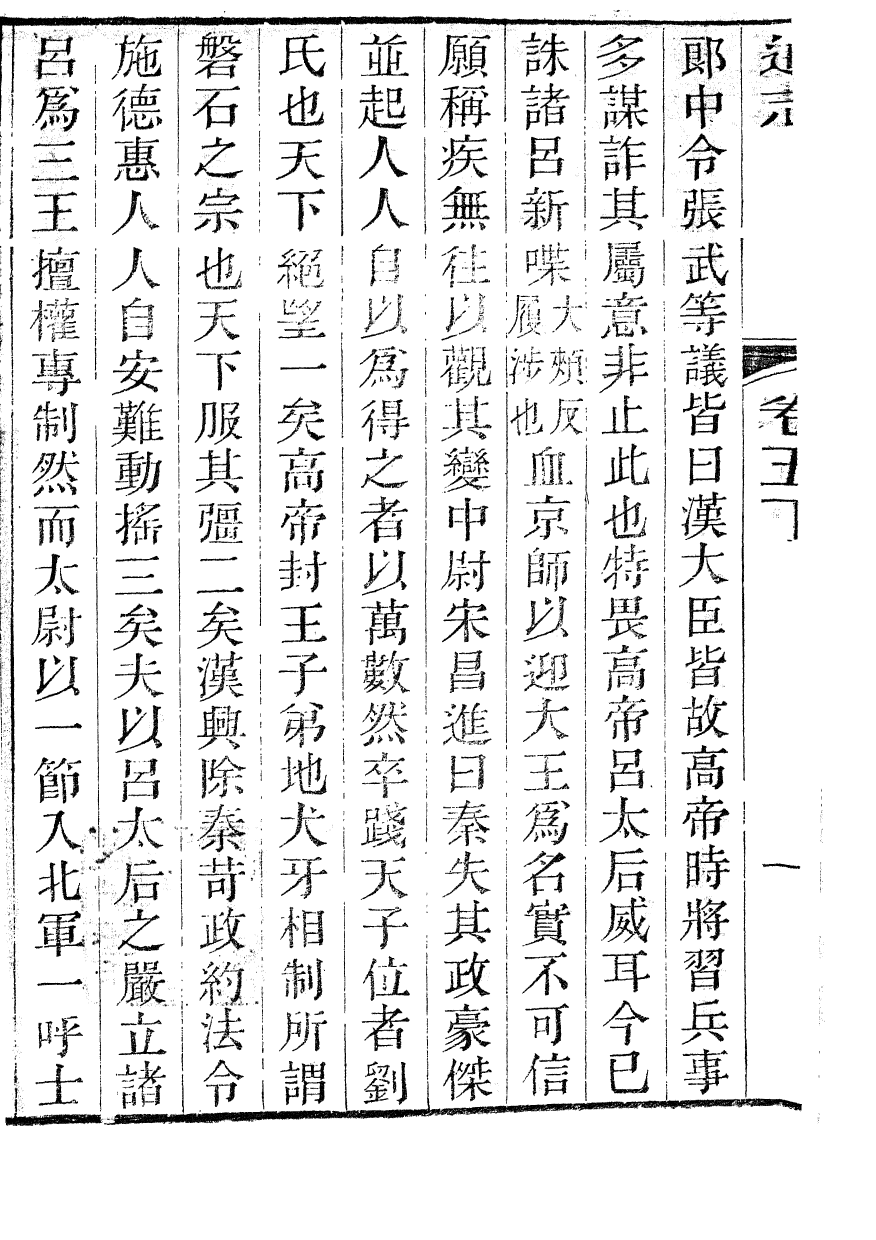 通志
卷五下
一
郎中令張武等議皆曰漢大臣皆故高帝時將習兵事
多謀詐其屬意非止此也特畏高帝呂太后威耳今已
誅諸呂新喋大頰反履涉也血京師以迎大王爲名實不可信
願稱疾無往以觀其變中尉宋昌進曰秦失其政豪傑
並起人人自以爲得之者以萬數然卒踐天子位者劉
氏也天下絕望一矣高帝封王子弟地犬牙相制所謂
磐石之宗也天下服其彊二矣漢興除秦苛政約法令
施德惠人人自安難動搖三矣夫以呂太后之嚴立諸
呂爲三王擅權專制然而太尉以一節入北軍一呼士